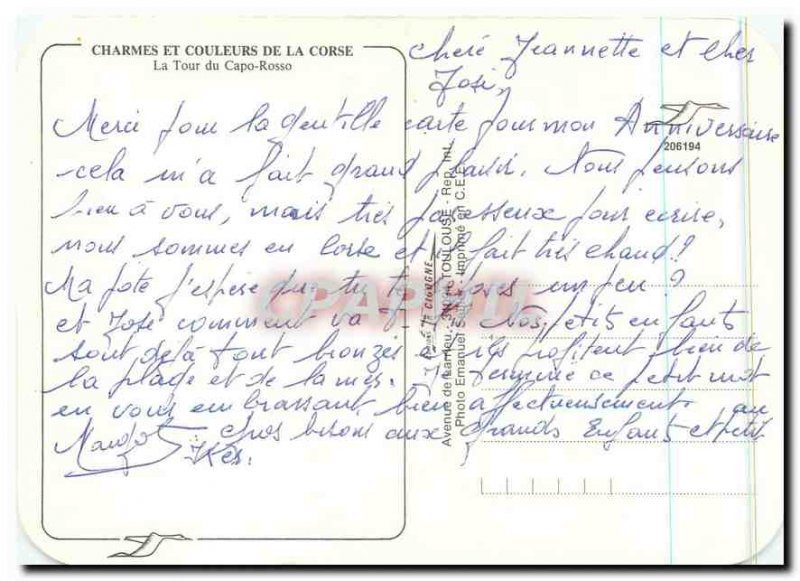 CHARMES ET COULEURS DE LA CORSE
La Tour du Capo-Rosso
chère Jeannette et cher
José,
Merci pour la gentille carte pour mon Anniversaire
cela m'a fait grand plaisir. Nous pensons
bien à vous, mais très paresseux pour écrire,
nous sommes en Corse et il fait très chaud!
Ma pote j'espère que tu te reposes un peu?
et José comment va Nos petits enfants
sont déjà tout bronzés ils profitent bien de
la plage et de la mer. Je termine ce petit mot
en vous embrassant bien affectueusement au
Margot gros bisous aux Grands Enfants et petit
206194
Avenue de Larrieu - TOULOUSE - Rep. int.
Photo Emanuel Imprimé en C.E.E.
CIGOGNE
CPAPHIL